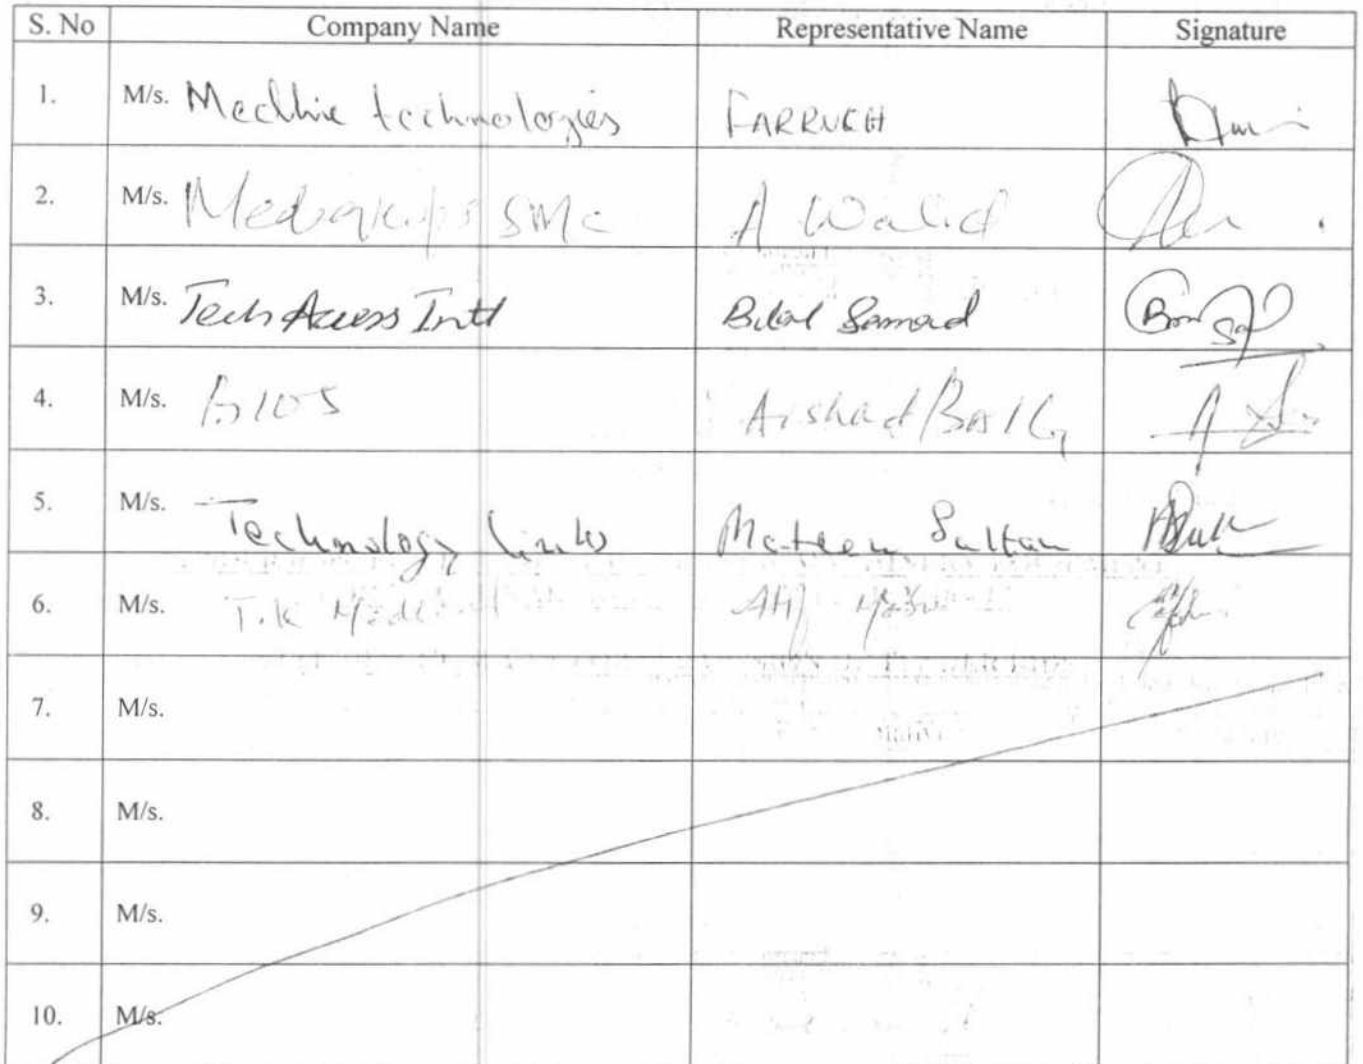 S. No Company Name Representative Name Signature
1. M/s. Medhie technologies FARRUKH
2. M/s. SMC A Walid
3. M/s. Tech Access Intl Bilal Samad
4. M/s. BIOS Arshad BAIG
5. M/s. Technology links Mateen Sultan
6. M/s. T.K
7. M/s.
8. M/s.
9. M/s.
10. M/s.